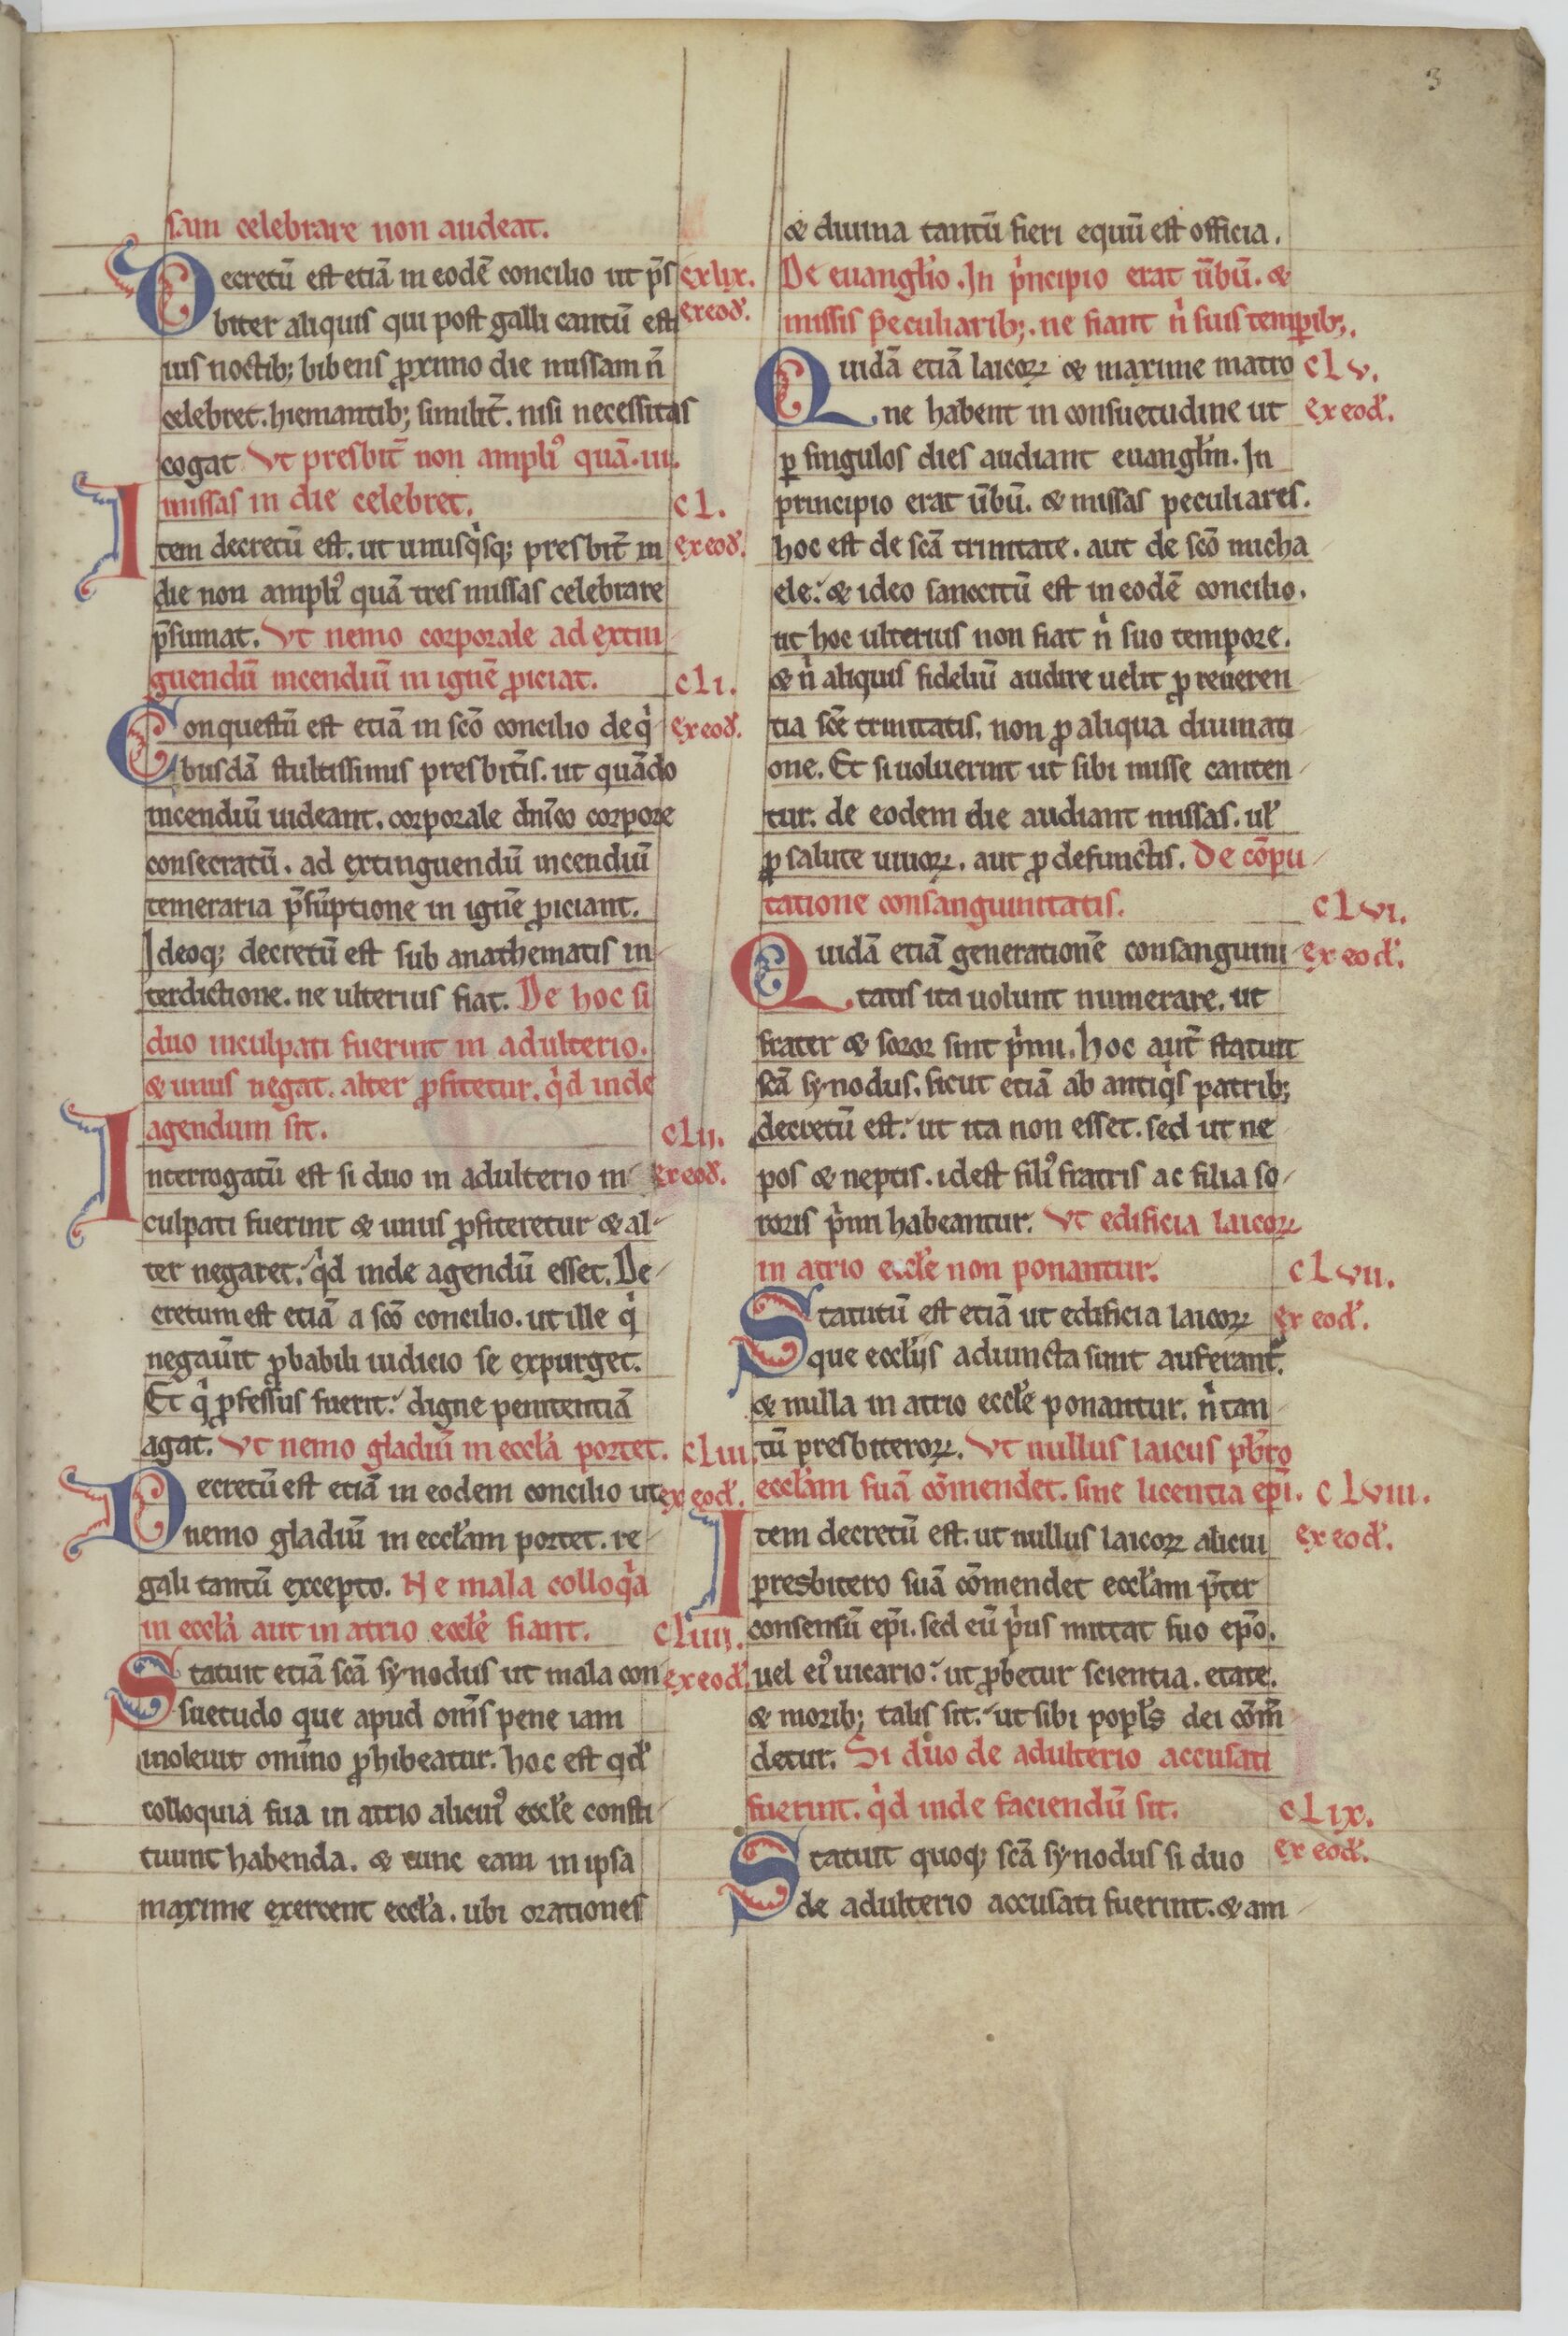 3
sam celebrare non audeat.
Decretū est etiā in eodē concilio ut p̄s
cxlix.
biter aliquis qui post galli cantū esti
ex eod̛.
uis noctib; bibens ꝓximo die missam n̄
celebret. hiemantib; similit̄. nisi necessitas
cogat Vt presbit̄ non ampliꝰ quā .iii.
missas in die celebret.
cl.
Item decretū est. ut unusqͥsq; presbit̄ in
ex eod̛.
die non ampliꝰ quā tres missas celebrare
p̄sumat. Vt nemo corporale ad extin
guendū incendiū in ignē ꝓiciat.
cli.
Conquestū est etiā in sc̄o concilio de qͥ
ex eod̛.
busdā stultissimis presbit̄is. ut quādo
incendiū uideant. corporale dn̄ico corpore
consecratū. ad extinguendū incendiū
temeraria p̄sūptione in ignē ꝓiciant.
Ideoq; decretū est sub anathematis in
terdictione. ne ulterius fiat. De hoc si
duo inculpati fuerint in adulterio.
& unus negat. alter ꝓfitetur. qͥd inde
agendum sit.
clii.
Interrogatū est si duo in adulterio in
ex eod̛.
culpati fuerint & unus ꝓfiteretur & al
ter negaret. qͥd inde agendū esset. De
cretum est etiā a sc̄o concilio. ut ille qͥ
negau̅it ꝓbabili iudicio se expurget.
Et qͥ ꝓfessus fuerit. digne penitentiā
agat. Vt nemo gladiū in eccl̄a portet.
cliii.
Decretū est etiā in eodem concilio ut
ex eod̛.
nemo gladiū in eccl̄am portet. re
gali tantū excepto. Ne mala colloqͥa
in eccl̄a aut in atrio eccl̄e fiant.
cliiii.
Statuit etiā sc̄a synodus ut mala con
ex eod̛.
suetudo que apud om̄s pene iam
inoleuit om̄ino ꝓhibeatur. hoc est qd̛
colloquia sua in atrio alicuiꝰ eccl̄e consti
tuunt habenda. & tunc eam in ipsa
maxime exercent eccl̄a. ubi orationes
& diuina tantū fieri equū est officia.
De euangl̄io. In pͥncipio erat u̅bū. &
missis peculiarib;. ne fiant nͥ suis temporib;.
Quidā etiā laicoꝝ & maxime matro
clv.
ne habent in consuetudine ut
ex eod̛.
ꝑ singulos dies audiant euangl̄m. In
principio erat u̅bū. & missas peculiares.
hoc est de sc̄a trinitate. aut de sc̄o micha
ele. & ideo sanccitū est in eodē concilio.
ut hoc ulterius non fiat nͥ suo tempore.
& nͥ aliquis fideliū audire uelit ꝓ reueren
tia sc̄e trinitatis. non ꝓ aliqua diuinati
one. Et si uoluerint ut sibi misse canten
tur. de eodem die audiant missas. ul̛
ꝓ salute uiuoꝝ. aut ꝓ defunctis. De cōpu
tatione consanguinitatis.
clvi.
Quidā etiā generationē consanguini
ex eod̛.
tatis ita uolunt numerare. ut
frater & soror sint pͥmi. hoc aut̄ statuit
sc̄a synodus. sicut etiā ab antiqͥs patrib;
decretū est. ut ita non esset. sed ut ne
pos & neptis. idest filiꝰ fratris ac filia so
roris pͥmi habeantur. Vt edificia laicoꝝ
in atrio eccl̄e non ponantur.
clvii.
Statutū est etiā ut edificia laicoꝝ
ex eod̛.
que eccl̄iis adiuncta sunt auferant̄.
& nulla in atrio eccl̄e ponantur. nͥ tan
tū presbiteroꝝ. Vt nullus laicus pb̄ro
eccl̄am suā cōmendet. sine licentia ep̄i.
clviii.
Item decretū est. ut nullus laicoꝝ alicui
ex eod̛.
presbitero suā cōmendet eccl̄am p̄ter
consensū ep̄i. sed eū pͥus mittat suo ep̄o.
uel eiꝰ uicario. ut ꝓbetur scientia. etate.
& morib; talis sit. ut sibi popl̄s dei cōm̄
detur. Si duo de adulterio accusati
fuerint. qͥd inde faciendū sit.
clix.
Statuit quoq; sc̄a synodus si duo
ex eod̛.
de adulterio accusati fuerint. & am